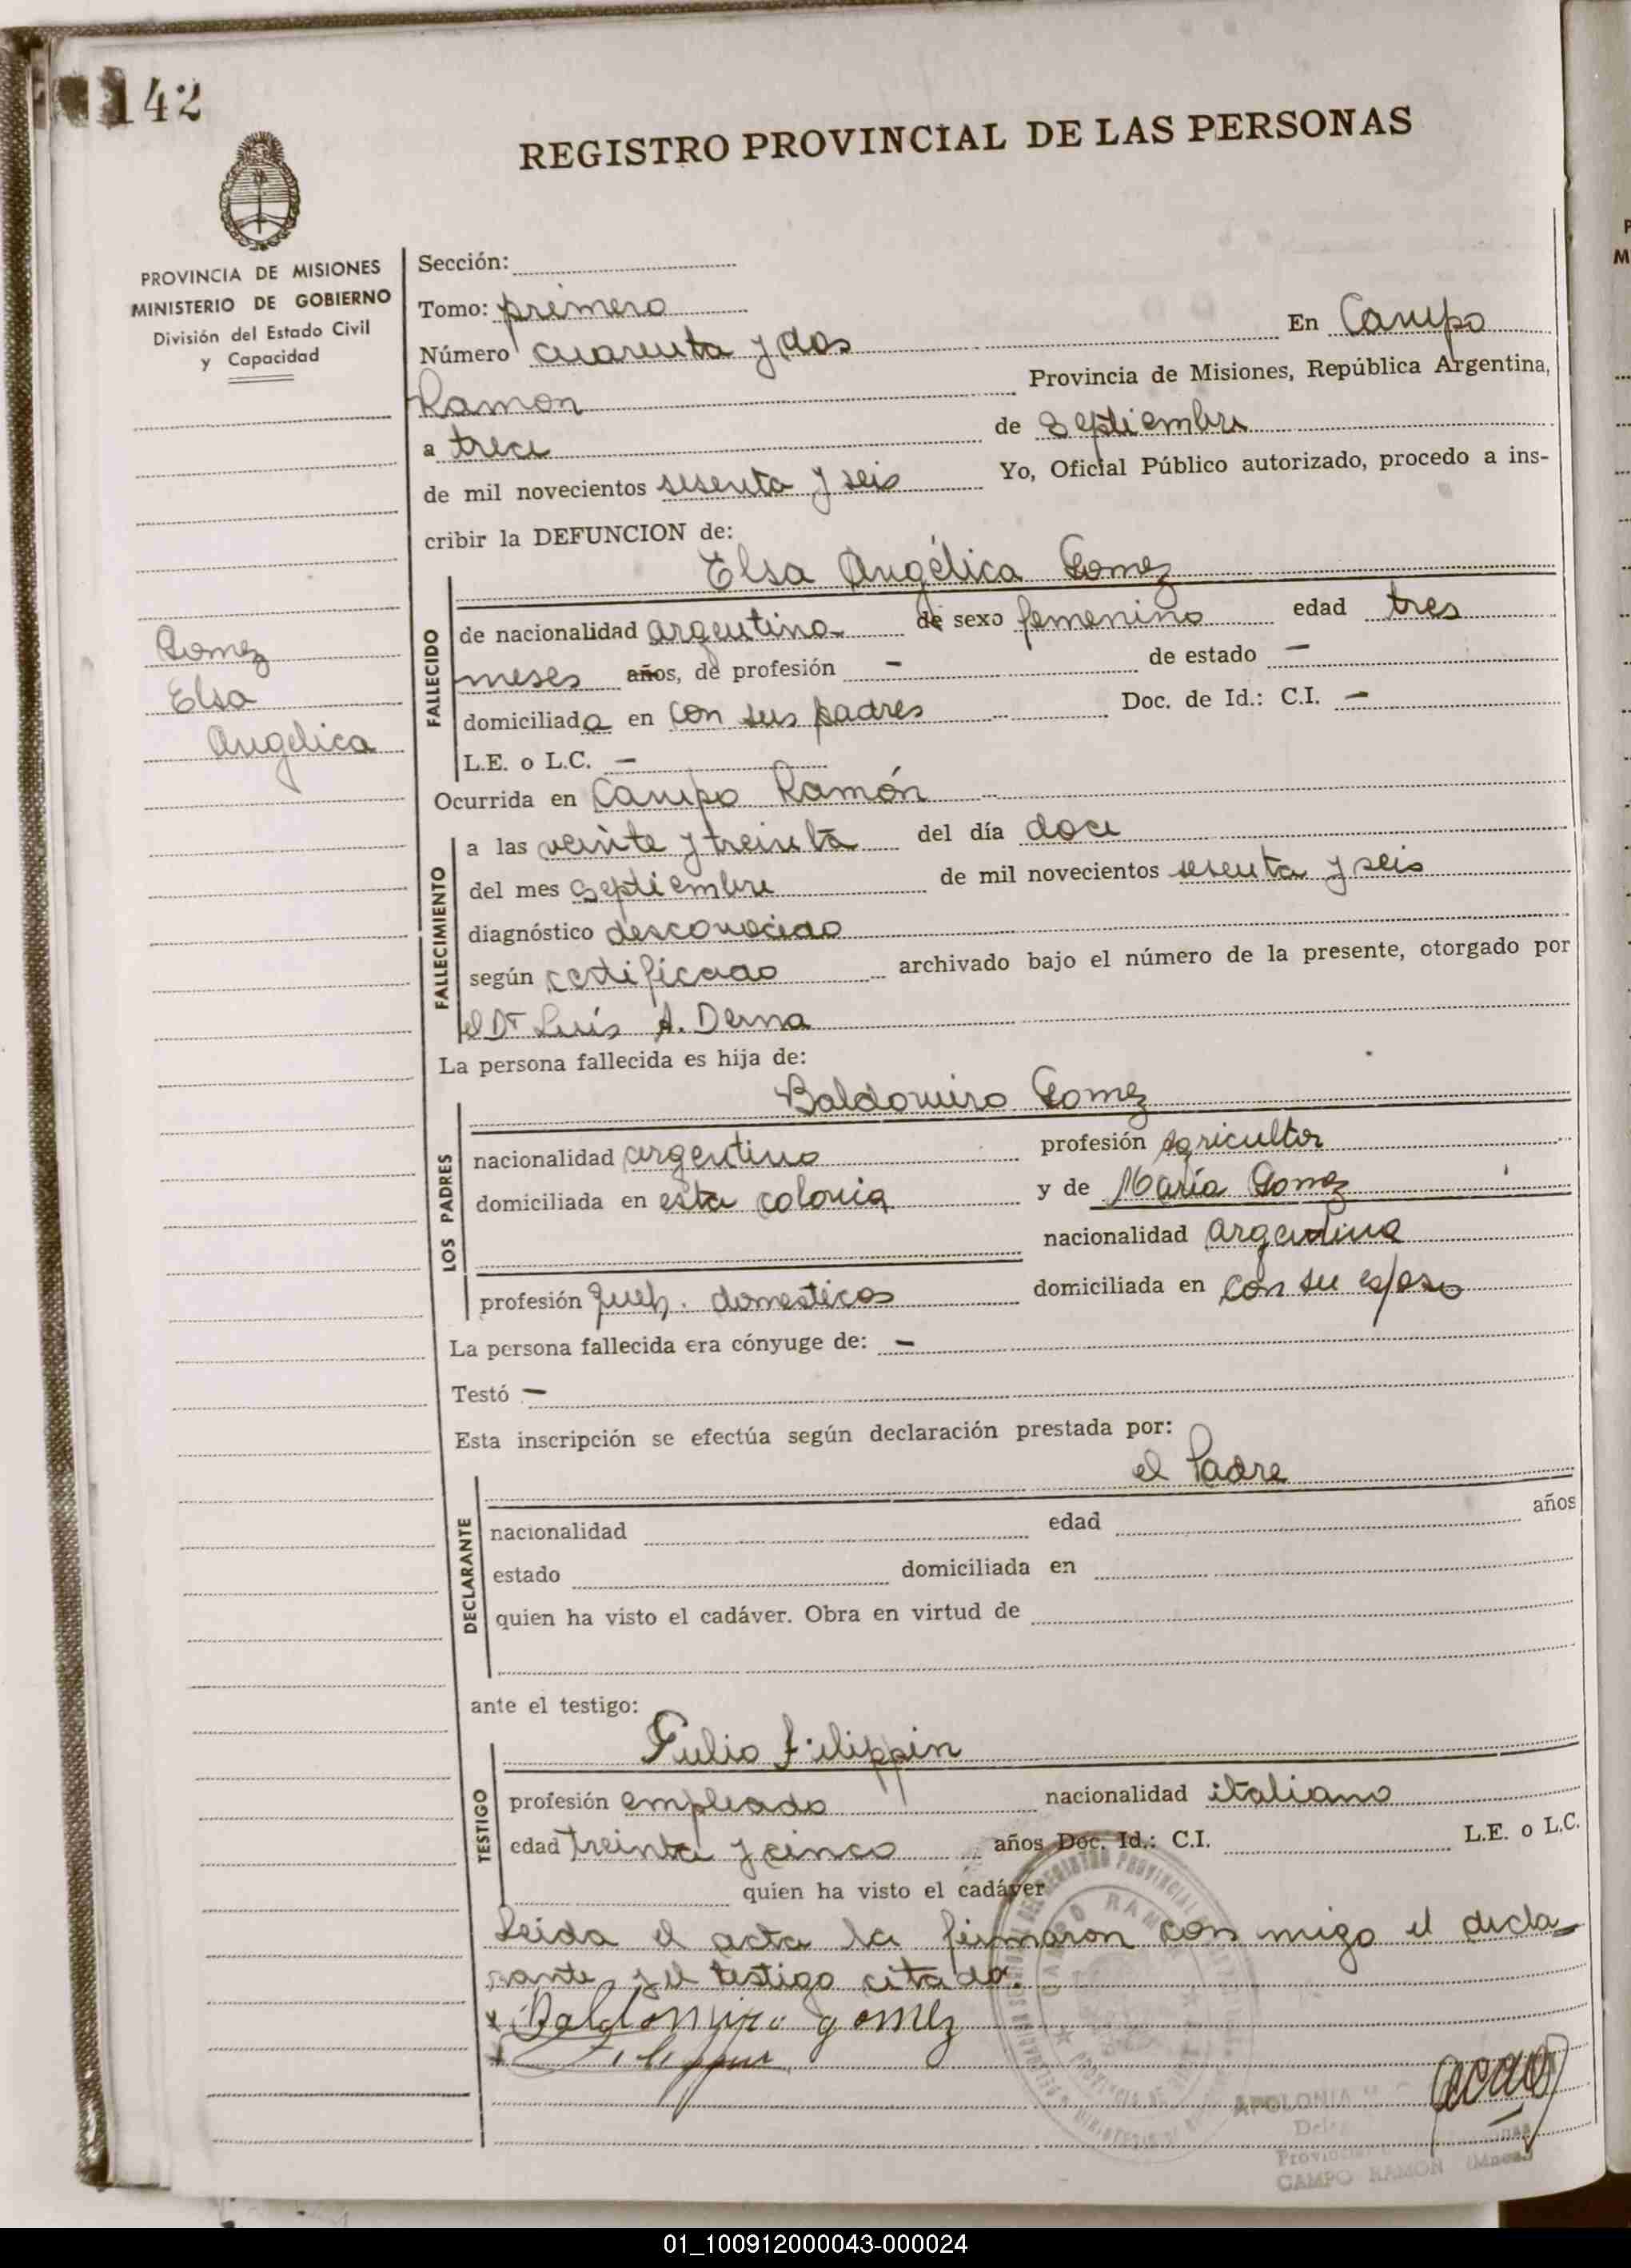 142
REGISTRO PROVINCIAL DE LAS PERSONAS
PROVINCIA DE MISIONES
MINISTERIO DE GOBIERNO
División del Estado Civil
y Capacidad
Gomez
Elsa
Angelica
Sección:
Tomo: primero
Número cuarenta y dos En Campo
Ramon Provincia de Misiones, República Argentina,
a trece de Septiembre
de mil novecientos sesenta y seis Yo, Oficial Público autorizado, procedo a ins-
cribir la DEFUNCION de:
Elsa Angélica Gomez
FALLECIDO
de nacionalidad argentina de sexo femenino edad tres
meses años, de profesión — de estado —
domiciliada en con sus padres Doc. de Id.: C.I. —
L.E. o L.C. —
Ocurrida en Campo Ramón
FALLECIMIENTO
a las veinte y treinta del día doce
del mes Septiembre de mil novecientos sesenta y seis
diagnóstico desconocido
según certificado archivado bajo el número de la presente, otorgado por
el Dr Luis A. Derna
La persona fallecida es hija de:
Baldomiro Gomez
LOS PADRES
nacionalidad argentino profesión agricultor
domiciliada en esta colonia y de María Gomez
nacionalidad argentina
profesión queh. domesticos domiciliada en con su esposo
La persona fallecida era cónyuge de: —
Testó —
Esta inscripción se efectúa según declaración prestada por:
el Padre
DECLARANTE
nacionalidad edad años
estado domiciliada en
quien ha visto el cadáver. Obra en virtud de
ante el testigo:
Tulio Filippin
TESTIGO
profesión empleado nacionalidad italiano
edad treinta y cinco años Doc. Id.: C.I. L.E. o L.C.
quien ha visto el cadáver
Leida el acta la firmaron con migo el decla-
rante y el testigo citado.
Baldomiro gomez
Filippin
CAMPO RAMON
APOLONIA
CAMPO RAMON (Mnes.)
01_100912000043-000024